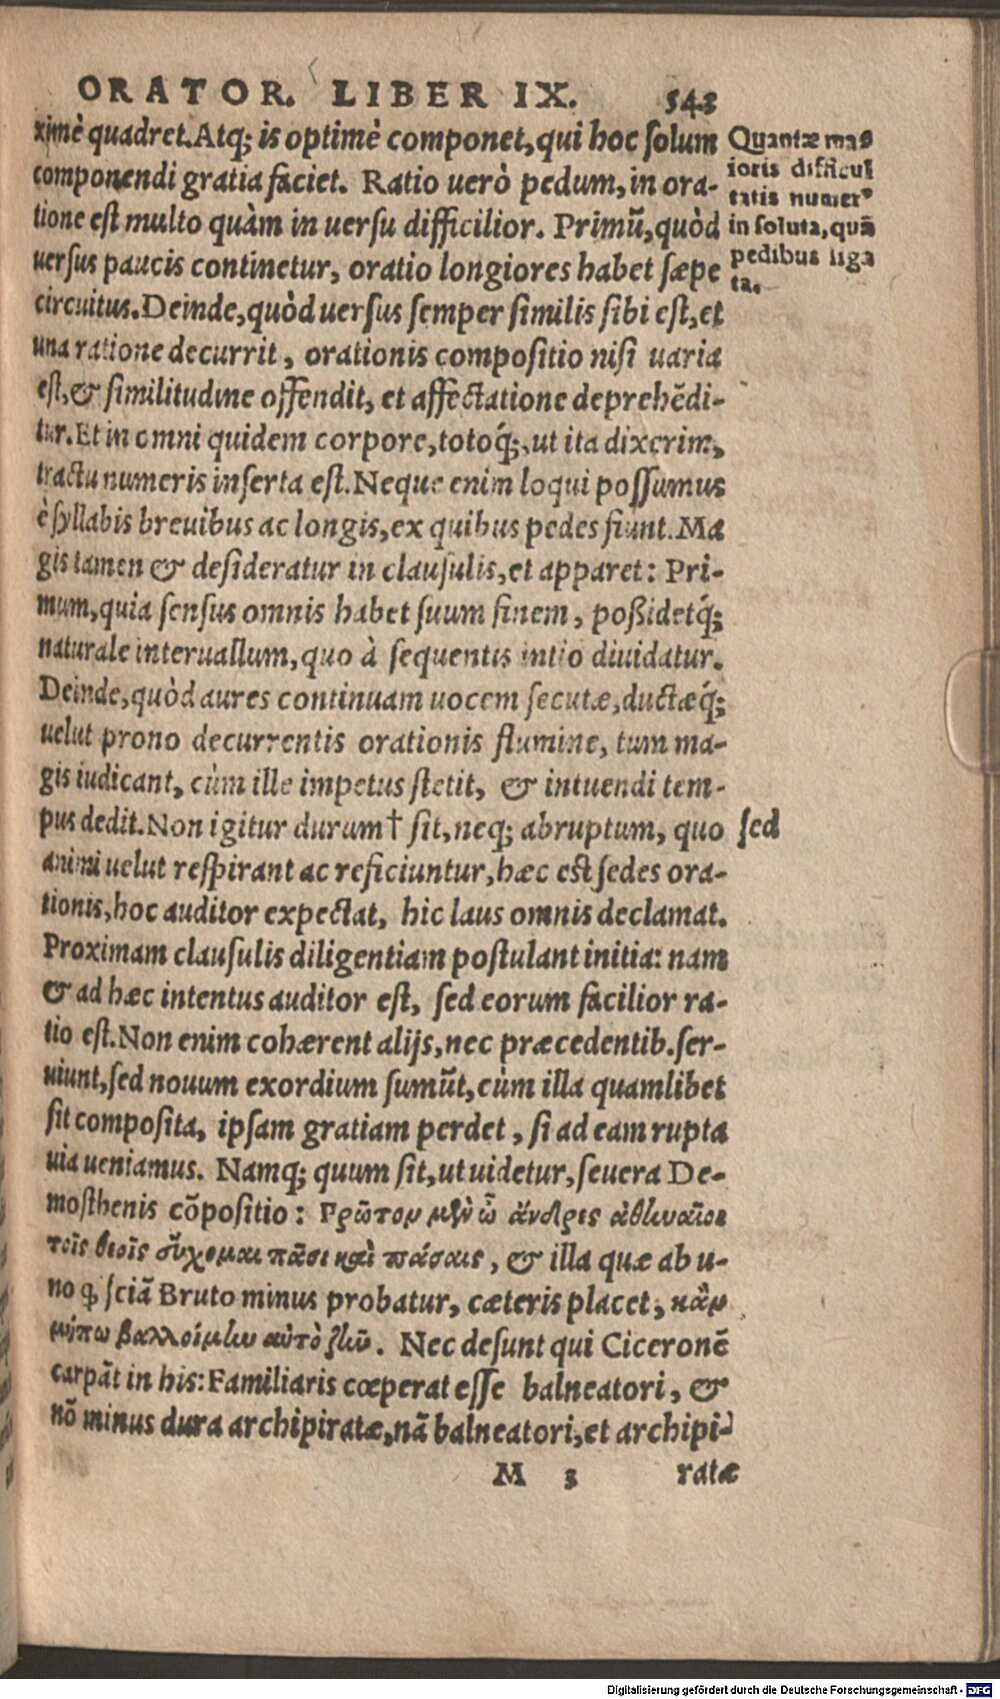 ORATOR. LIBER IX. 543
ximè quadret. Atq; is optimè componet, qui hoc ſolum
componendi gratia faciet. Ratio uerò pedum, in ora-
tione eſt multo quàm in uerſu difficilior. Primũ, quòd
uerſus paucis continetur, oratio longiores habet ſæpe
circuitus. Deinde, quòd uerſus ſemper ſimilis ſibi eſt, et
una ratione decurrit, orationis compoſitio niſi uaria
eſt, & ſimilitudine offendit, et affectatione deprehẽdi-
tur. Et in omni quidem corpore, totoq́;, ut ita dixerim,
tractu numeris inſerta eſt. Neque enim loqui poſſumus
è ſyllabis breuibus ac longis, ex quibus pedes fiunt. Ma
gis tamen & deſideratur in clauſulis, et apparet: Pri-
mum, quia ſenſus omnis habet ſuum finem, poßidetq́;
naturale interuallum, quo à ſequentis intio diuidatur.
Deinde, quòd aures continuam uocem ſecutæ, ductæq́;
uelut prono decurrentis orationis flumine, tum ma-
gis iudicant, cùm ille impetus ſtetit, & intuendi tem-
pus dedit. Non igitur durum† ſit, neq; abruptum, quo
animi uelut reſpirant ac reficiuntur, hæc eſt ſedes ora-
tionis, hoc auditor expectat, hic laus omnis declamat.
Proximam clauſulis diligentiam poſtulant initia: nam
& ad hæc intentus auditor eſt, ſed eorum facilior ra-
tio eſt. Non enim cohærent alijs, nec præcedentib. ſer-
uiunt, ſed nouum exordium ſumũt, cùm illa quamlibet
ſit compoſita, ipſam gratiam perdet, ſi ad eam rupta
uia ueniamus. Namq; quum ſit, ut uidetur, ſeuera De-
moſthenis cõpoſitio: Πρῶτον μὲν ὦ ἄνδρες ἀθηναῖοι
τοῖς θεοῖς εὔχομαι πᾶσι καὶ πάσαις, & illa quæ ab u-
no ꝗ̃ ſciã Bruto minus probatur, cæteris placet, κἂν
μήπω βαλλοίμην αὐτὸ ζῆν. Nec deſunt qui Ciceronẽ
carpãt in his: Familiaris cœperat eſſe balneatori, &
nõ minus dura archipiratæ, nã balneatori, et archipi-
M 3 ratæ
Quantæ ma-
ioris difficul
tatis numerꝰ
in ſoluta, quã
pedibus liga
ta.
ſed
Digitalisierung gefördert durch die Deutsche Forschungsgemeinschaft - DFG